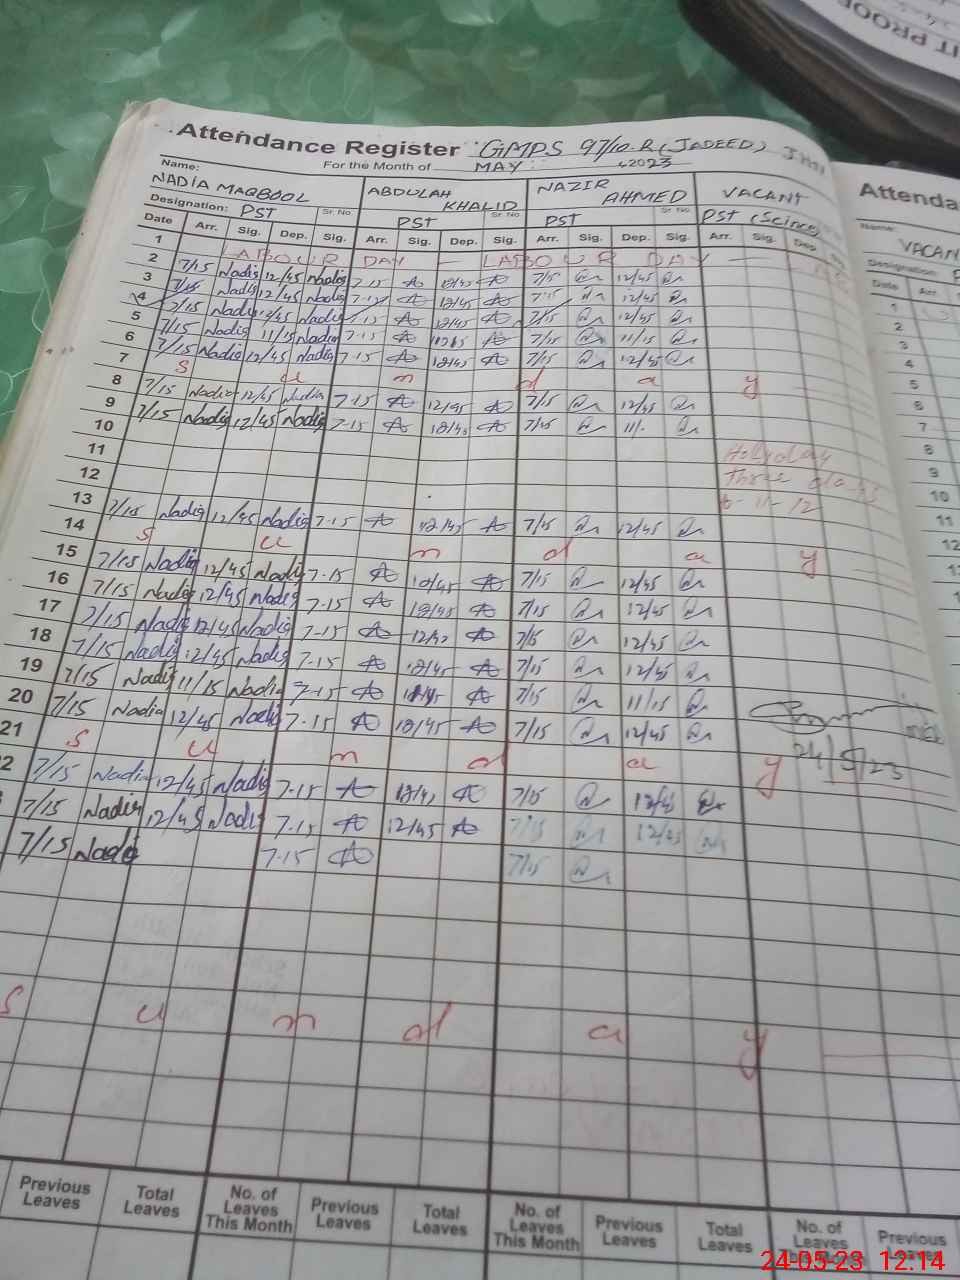 IT PROOF
Attendance Register GMPS 97/10.R (JADEED)
For the Month of MAY 2023
Name:
NADIA MAQBOOL ABDULAH KHALID NAZIR AHMED VACANT
Designation: PST Sr. No. PST Sr. No. PST Sr. No. PST (Scince)
Date Arr. Sig. Dep. Sig. Arr. Sig. Dep. Sig. Arr. Sig. Dep. Sig. Arr. Sig. Dep.
1 LABOUR DAY — LABOUR DAY —
2 7/15 Nadia 12/45 Nadia 7-15 12/45 7/15 12/45
3 7/15 Nadia 12/45 Nadia 7-15 12/45 7/15 12/45
4 7/15 Nadia 12/45 Nadia 7-15 12/45 7/15 12/45
5 7/15 Nadia 11/15 Nadia 7-15 7/15 11/15
6 7/15 Nadia 12/45 Nadia 7-15 12/45 7/15 12/45
7 S u n d a y
8 7/15 Nadia 12/45 Nadia 7-15 12/45 7/15 12/45
9 7/15 Nadia 12/45 Nadia 7-15 12/45 7/15 11/-
10 Holyday
11 three days
12 11-12
13 7/15 Nadia 12/45 Nadia 7-15 12/45 7/15 12/45
14 S u n d a y
15 7/15 Nadia 12/45 Nadia 7-15 12/45 7/15 12/45
16 7/15 Nadia 12/45 Nadia 7-15 12/45 7/15 12/45
17 7/15 Nadia 12/45 Nadia 7-15 7/15 12/45
18 7/15 Nadia 12/45 Nadia 7-15 12/45 7/15 12/45
19 7/15 Nadia 11/15 Nadia 7-15 7/15 11/15
20 7/15 Nadia 12/45 Nadia 7-15 12/45 7/15 12/45
21 S u n d a y 24/5/23
2 7/15 Nadia 12/45 Nadia 7-15 7/15 12/45
7/15 Nadia 12/45 Nadia 7-15 12/45 7/15 12/45
7/15 Nadia 7-15 7/15
S u n d a y
Previous Leaves Total Leaves No. of Leaves This Month Previous Leaves Total Leaves No. of Leaves This Month Previous Leaves Total Leaves No. of Leaves This Month Previous Leaves
Attenda
Name:
VACAN
Designation:
Date Arr.
1
2
3
4
5
6
7
8
9
10
11
12
13
24-05-23 12:14